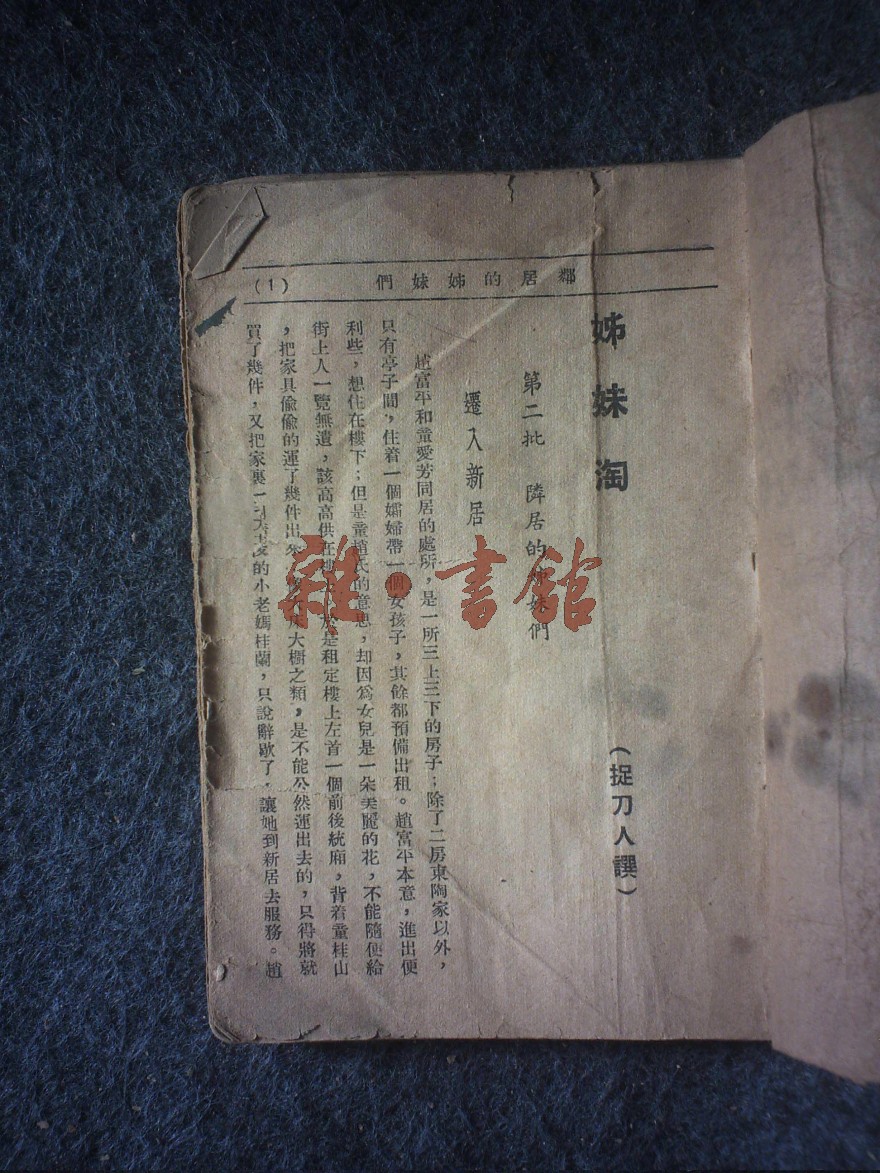 鄰居的姊妹們
(1)
姊妹淘
(捉刀人譔)
第二批 隣居的姊妹們
遷入新居
趙富平和董愛芳同居的處所，是一所三上三下的房子；除了二房東陶家以外，
只有亭子間，住着一個孀婦帶一個女孩子，其餘都預備出租。趙富平本意，進出便
利些，想住在樓下；但是董趙氏的意思，却因爲女兒是一朵美麗的花，不能隨便給
街上人一覽無遺，該高高供在樓上，於是租定樓上左首一個前後統廂，背着董桂山
，把家具偷偷的運了幾件出來，大床大櫥之類，是不能公然運出去的，只得將就
買了幾件，又把家裏一的小老媽桂蘭，只說辭歇了，讓她到新居去服務。趙
雜·書館